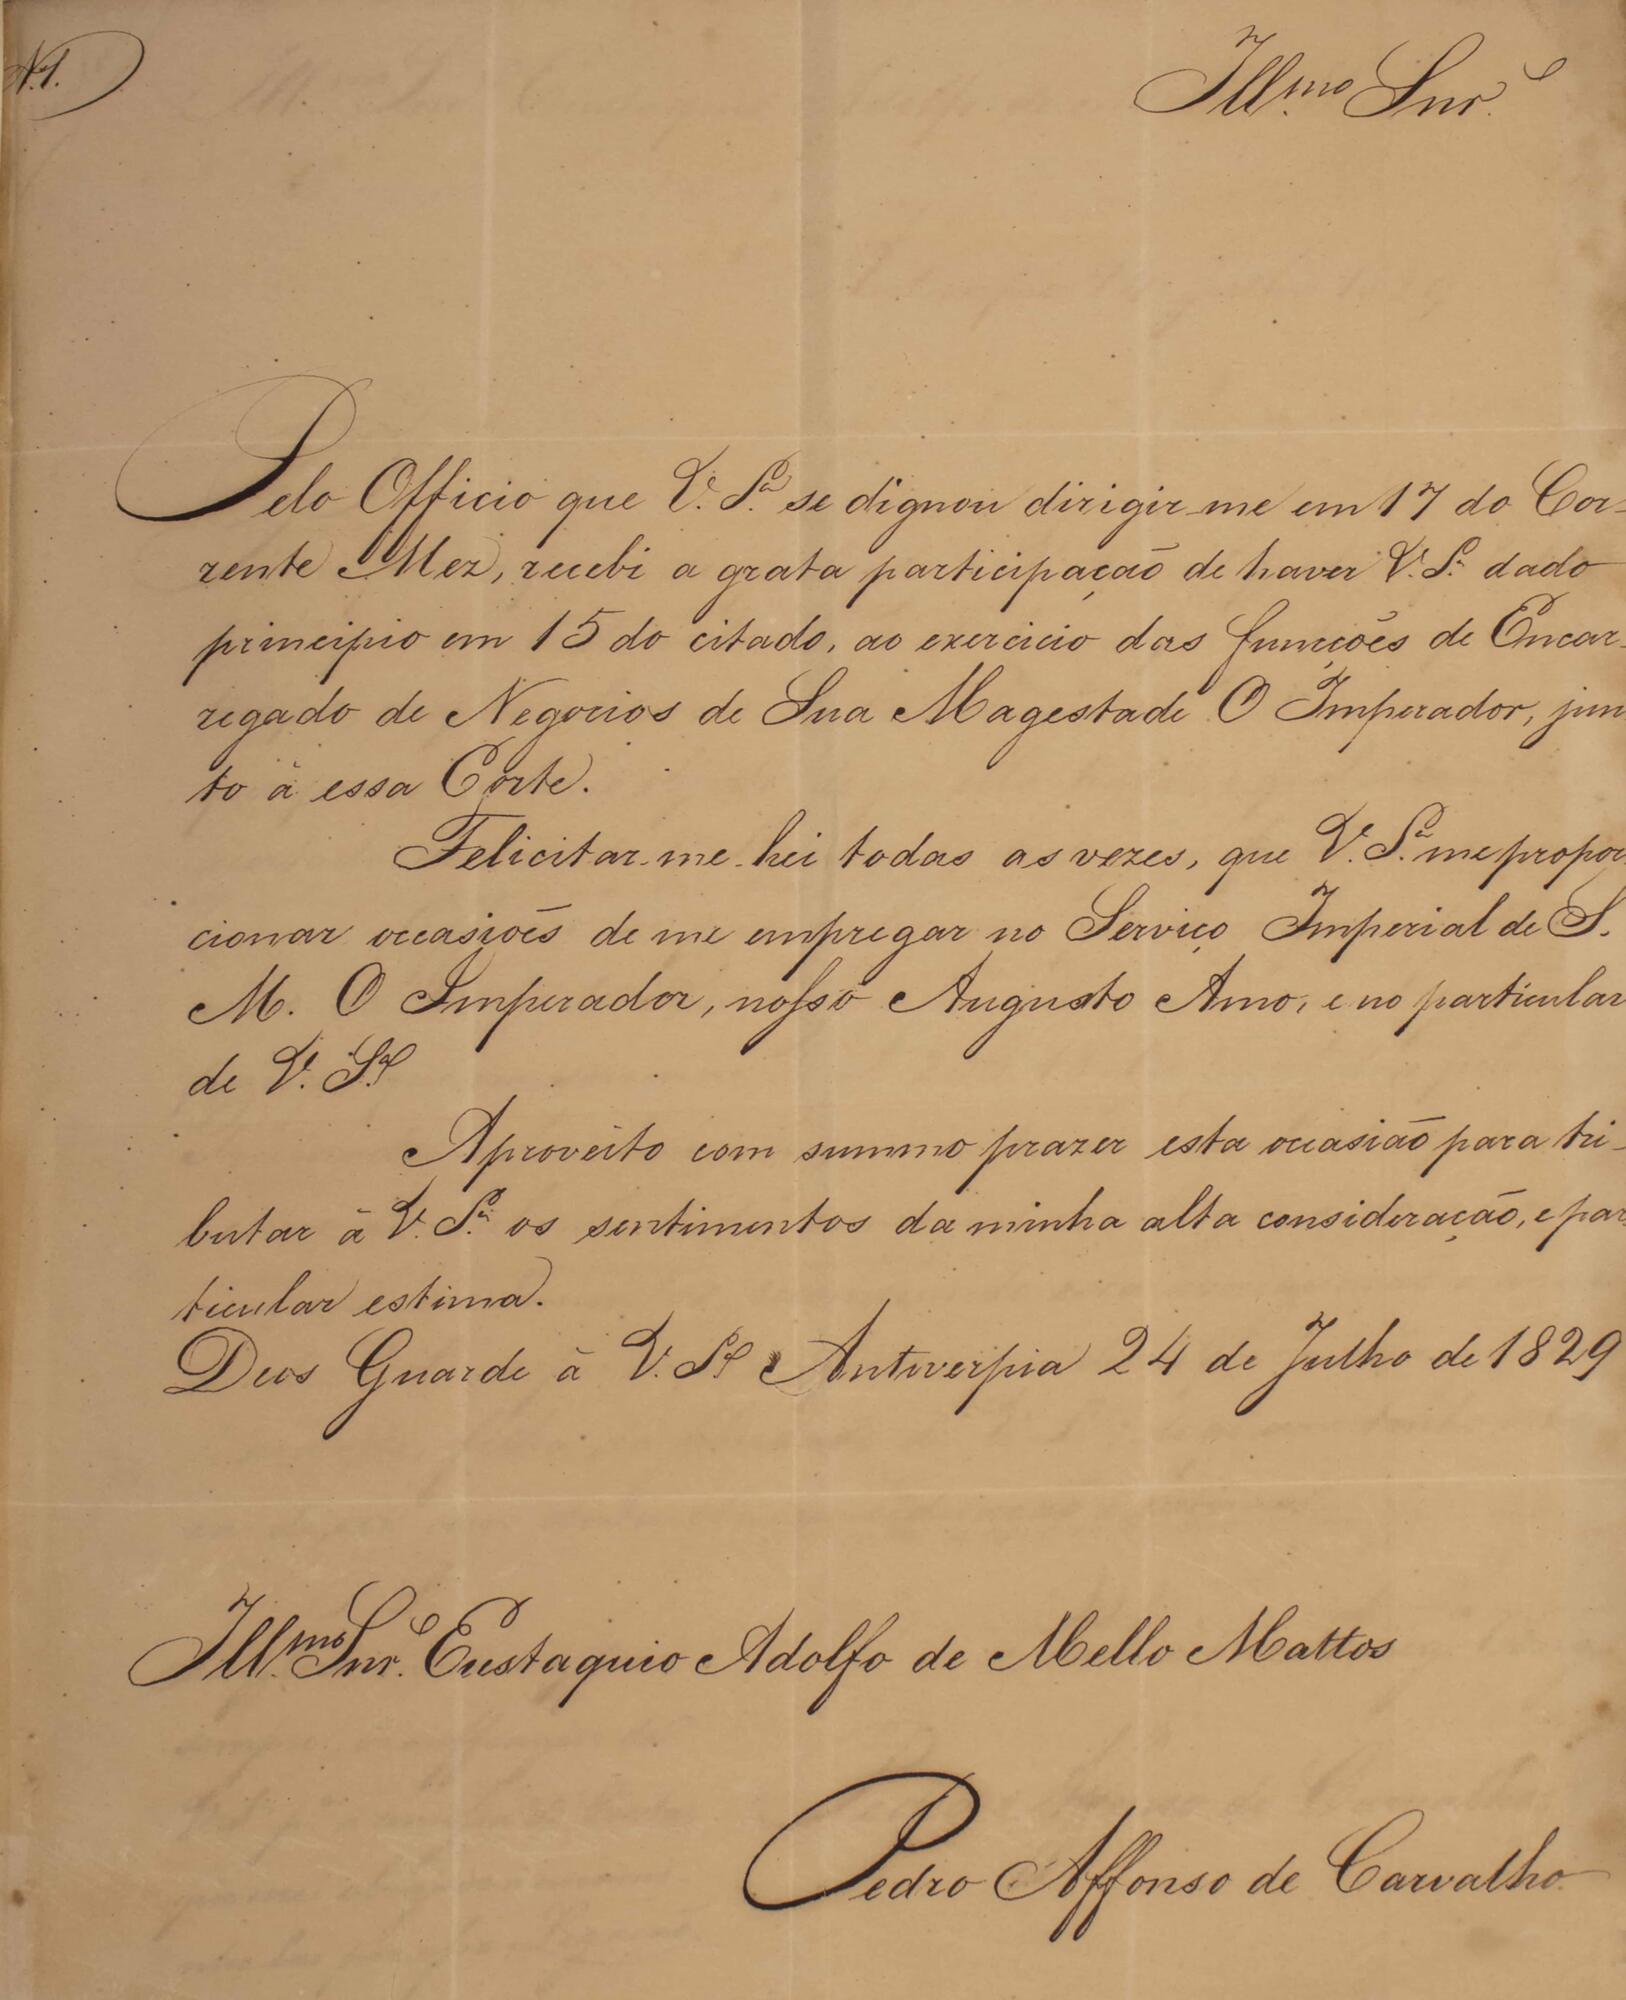 N.1.
Ill.mo Snr.
Pelo Officio que V. S.a se dignou dirigir-me em 17 do Cor-
rente Mez, recebi a grata participação de haver V. S.a dado
principio em 15 do citado, ao exercicio das funções de Encar-
regado de Negocios de Sua Magestade O Imperador, jun
to à essa Corte.
Felicitar-me-hei todas as vezes, que V. S.a me propor
cionar occasioēs de me empregar no Serviço Imperial de S.
M. O Imperador, nosso Augusto Amo, e no particular
de V. S.a
Aproveito com summo prazer esta occasião para tri-
butar à V. S.a os sentimentos da minha alta consideração, e par
ticular estima.
Deos Guarde à V. S.a Antwerpia 24 de Julho de 1829
Ill.mo Snr. Eustaquio Adolfo de Mello Mattos
Pedro Affonso de Carvalho